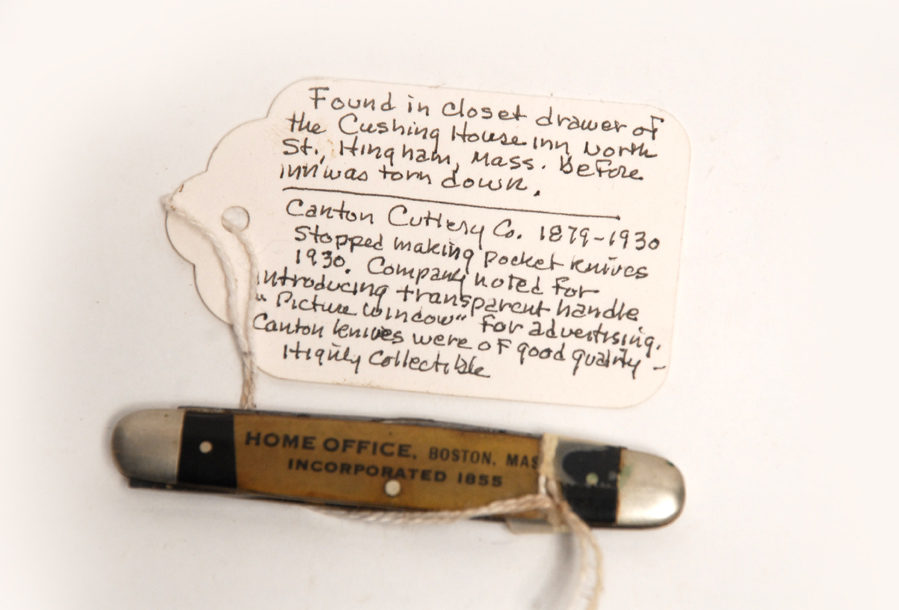 Found in closet drawer of
the Cushing House inn North
St., Hingham, Mass. Before
inn was torn down.
Canton Cutlery Co. 1879-1930
Stopped making pocket knives
1930. Company noted for
introducing transparent handle
"Picture window" for advertising.
Canton knives were of good quality -
Highly Collectible
HOME OFFICE, BOSTON, MAS
INCORPORATED 1855